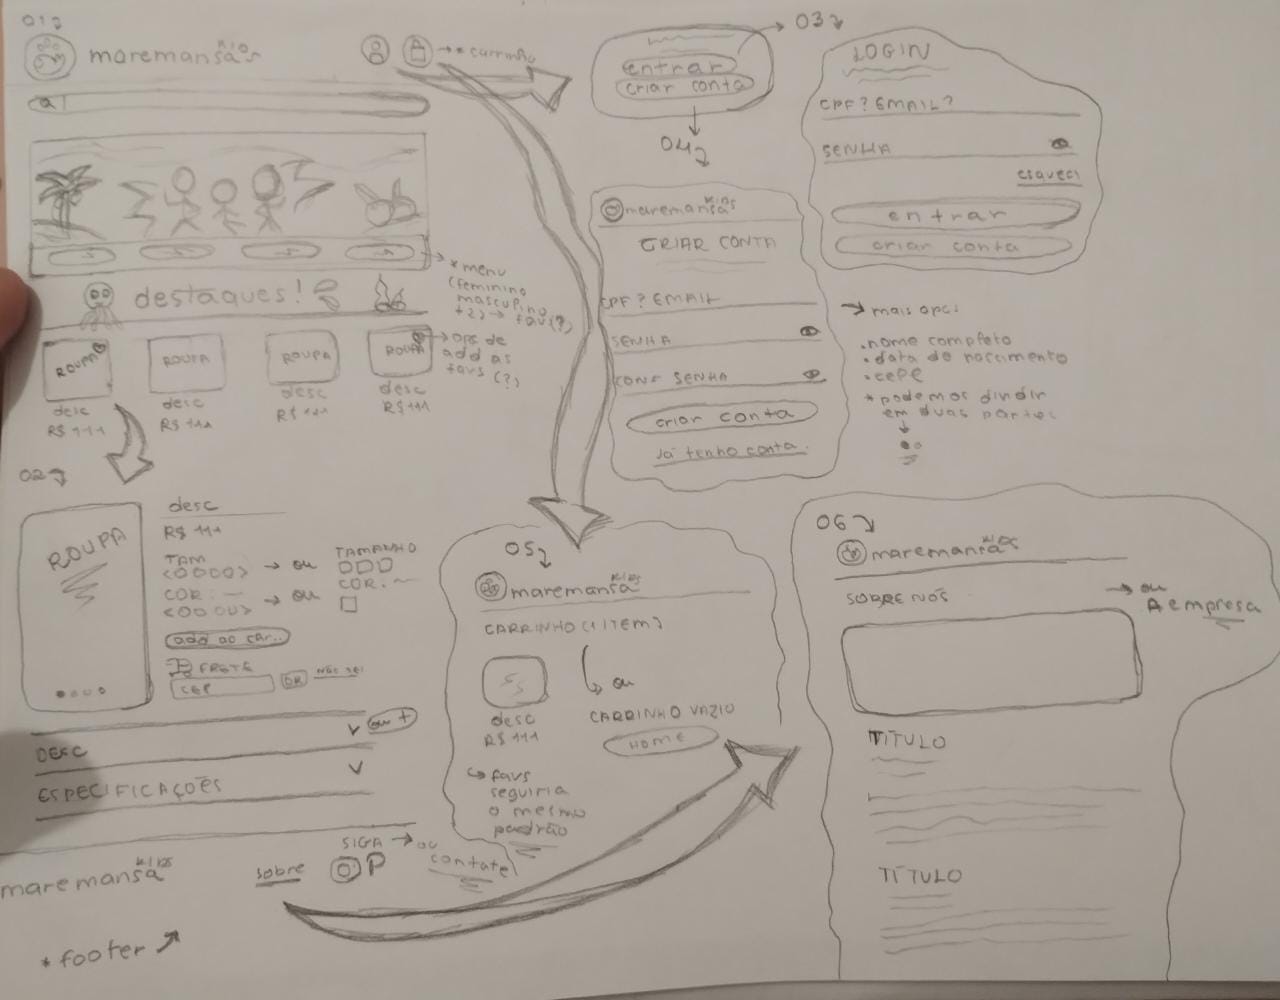 01
maremansa KIDS
* carrinho
destaques!
* menu
(feminino
masculino
+2) → favs(?)
ROUPA
ROUPA
ROUPA
ROUPA
ops de
add as
favs
(?)
desc
R$ 111
desc
R$ 111
desc
R$ 111
desc
R$ 111
02
ROUPA
desc
R$ 111
TAM
<0000>
→ ou
TAMANHO
COR: ~
COR: —
<0000>
→ ou
add ao car..
FRETE
CEP
OK
NÃO SEI
ou +
DESC
ESPECIFICAÇÕES
maremansa KIDS
sobre
SIGA → ou
contate
P
* footer
entrar
criar conta
03
LOGIN
CPF? EMAIL?
SENHA
esqueci
entrar
criar conta
04
maremansa KIDS
CRIAR CONTA
CPF? EMAIL
SENHA
CONF SENHA
criar conta
Já tenho conta.
→ mais opc:
.nome completo
.data de nascimento
* podemos dividir
em duas partes
05
maremansa KIDS
CARRINHO (1 ITEM)
ou
desc
R$ 111
CARRINHO VAZIO
HOME
favs
seguiria
o mesmo
padrão
06
maremansa KIDS
SOBRE NÓS
→ ou
A empresa
TÍTULO
TÍTULO